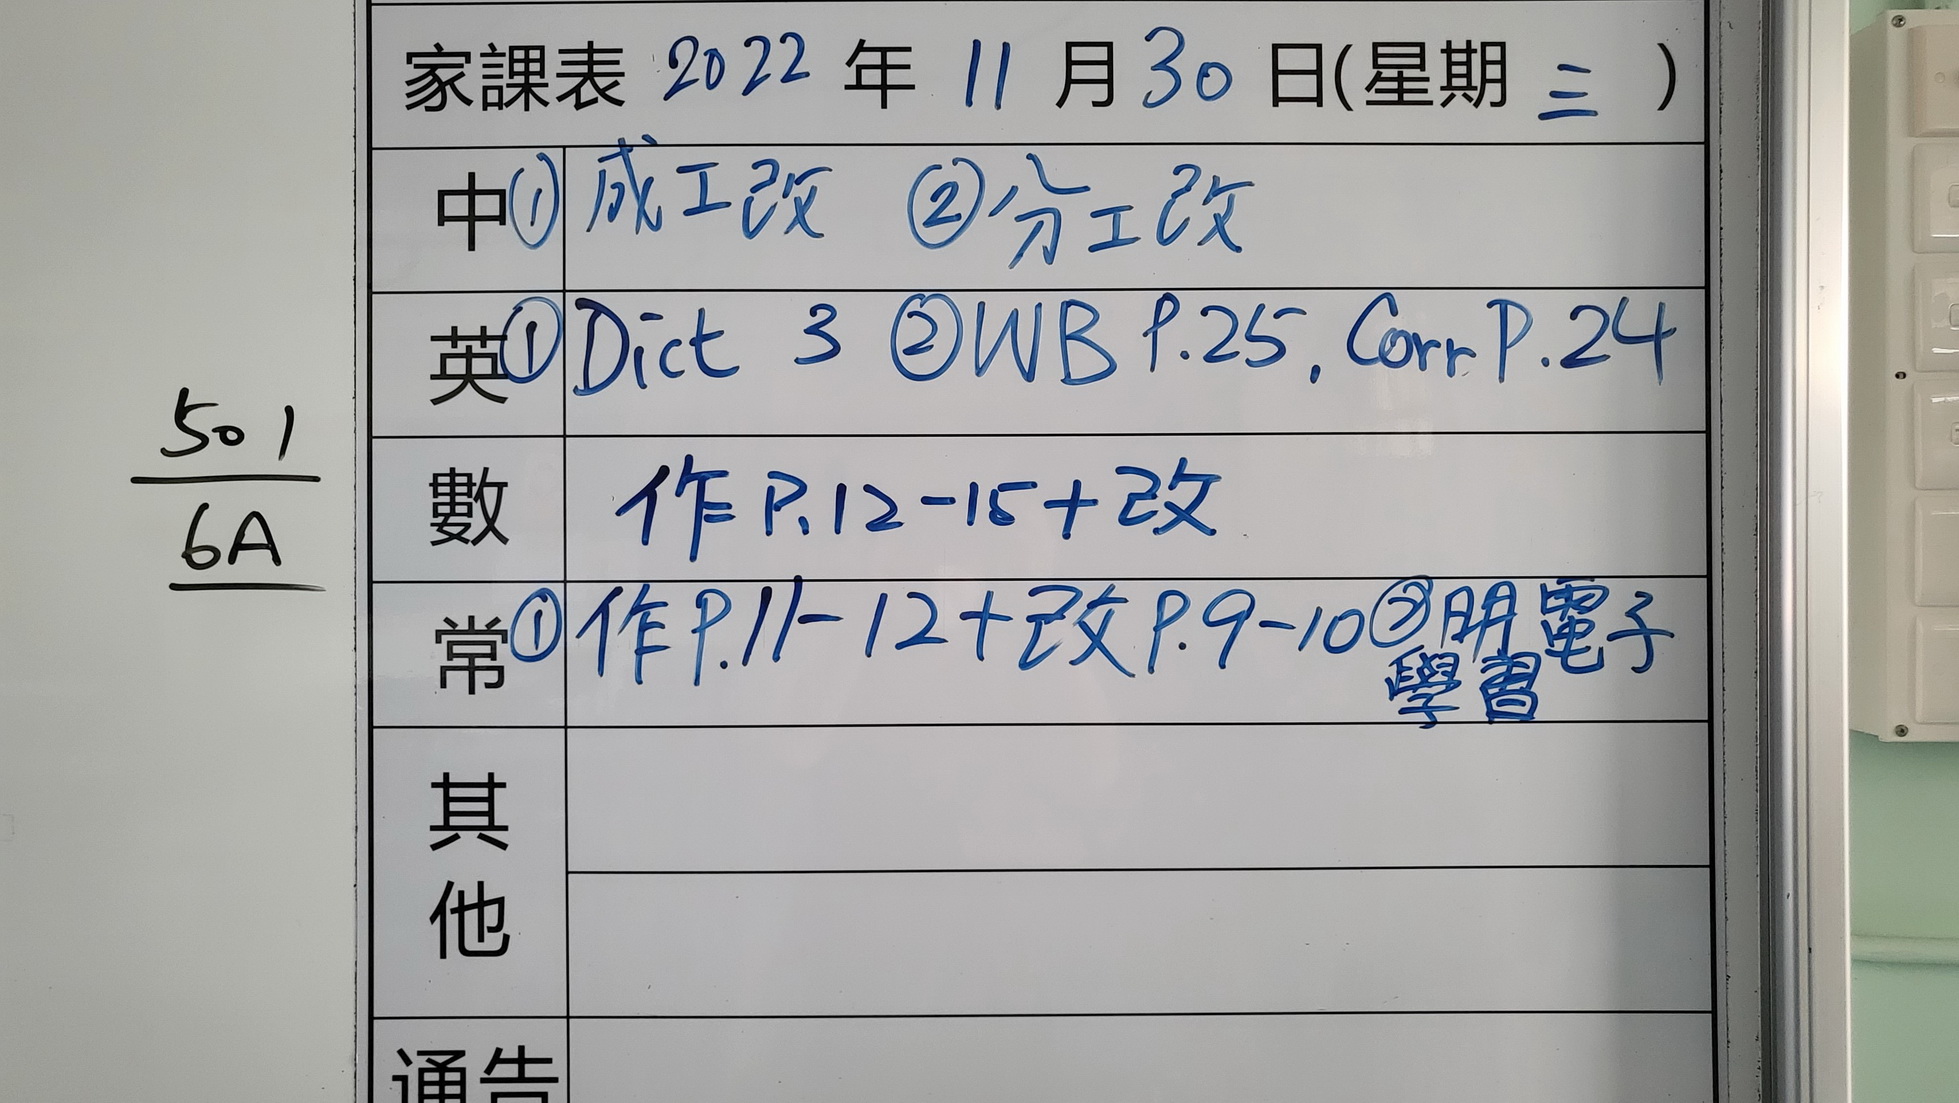 家課表 2022 年 11 月 30 日(星期 三 )
中 ① 成工改 ② 分工改
英 ① Dict 3 ② WB P.25, Corr. P.24
數 作 P.12-15+改
常 ① 作P.11-12+改P.9-10 ② 朋電子
學習
其
他
通告
501
6A